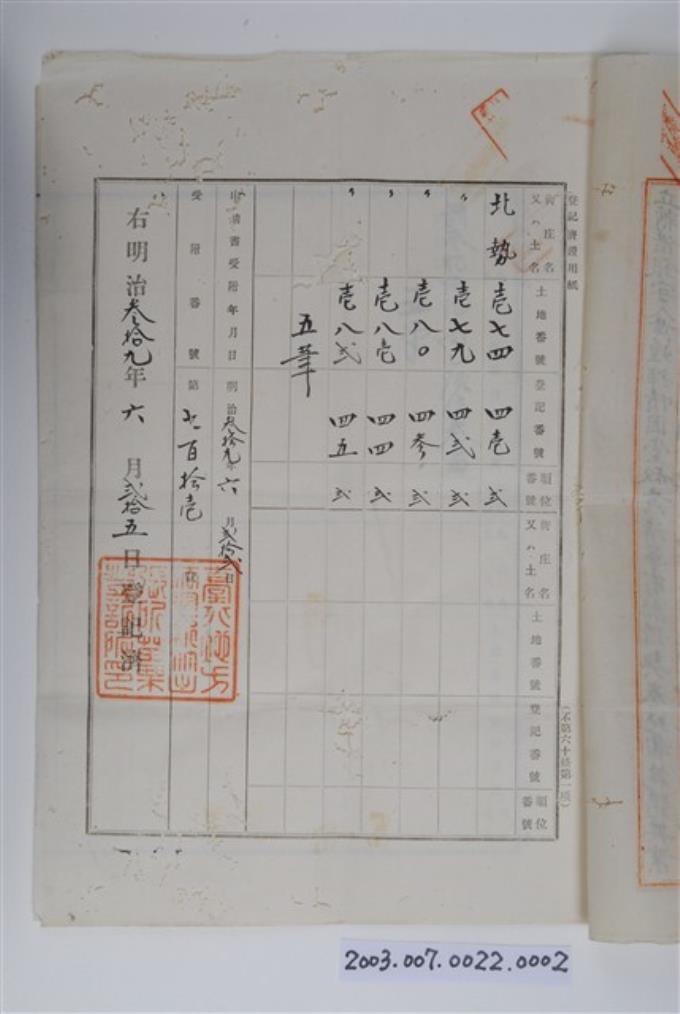 登記濟證用紙
(不第六十條第一項)
街庄名又ハ土名
土地番號
登記番號
順位番號
街庄名又ハ土名
土地番號
登記番號
順位番號
北勢 壱七四 四壱 弍
〃 壱七九 四弍 弍
〃 壱八〇 四参 弍
〃 壱八壱 四四 弍
〃 壱八弍 四五 弍
五筆
申請書受附年月日 明治参拾九年六月弍拾弍日
受附番號 第七百拾壱號
右明治参拾九年六月弍拾五日登記濟
2003.007.0022.0002